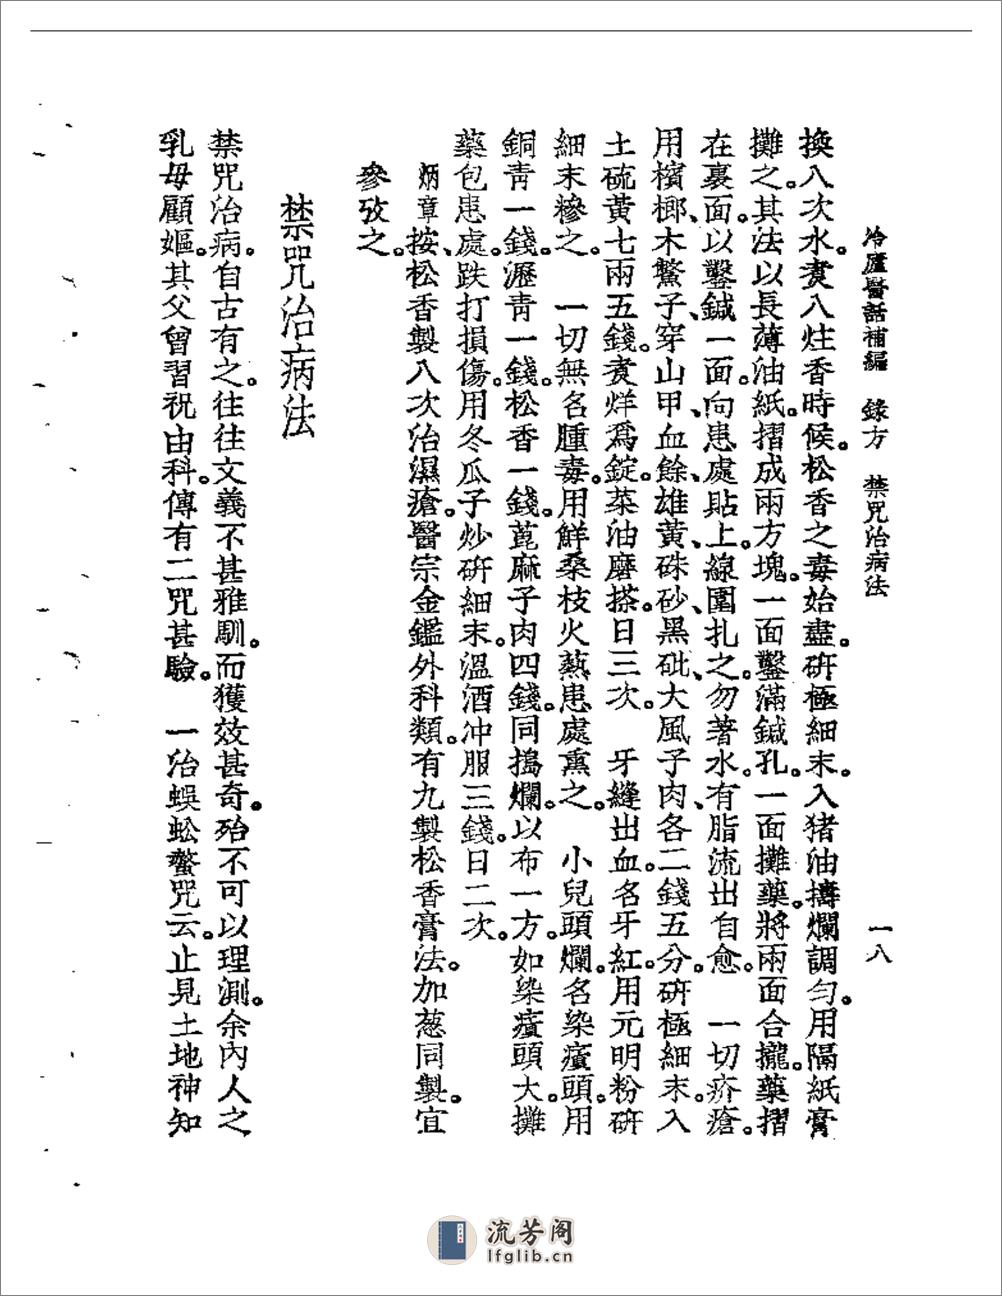 冷廬醫話補編　錄方　禁咒治病法　一八
換八次水。煑八炷香時候。松香之毒始盡。硏極細末。入猪油擣爛調勻。用隔紙膏
攤之。其法以長薄油紙。摺成兩方塊。一面鑿滿鍼孔。一面攤藥。將兩面合攏。藥摺
在裏面。以鑿鍼一面。向患處貼上。線圍扎之。勿著水。有脂流出自愈。　一切疥瘡。
用檳榔、木鱉子、穿山甲、血餘、雄黃、硃砂、黑砒、大風子肉、各二錢五分。硏極細末。入
土硫黃七兩五錢。煑烊爲錠。菜油磨搽。日三次。　牙縫出血名牙紅。用元明粉硏
細末糝之。　一切無名腫毒。用鮮桑枝火爇患處熏之。　小兒頭爛。名染瘡頭。用
銅靑一錢。瀝靑一錢。松香一錢。萞麻子肉四錢。同搗爛。以布一方。如染瘡頭大。攤
藥包患處。跌打損傷。用冬瓜子炒硏細末。溫酒冲服三錢。日二次。
炳章按、松香製八次治濕瘡。醫宗金鑑外科類。有九製松香膏法。加葱同製。宜
參攷之。
禁咒治病法
禁咒治病。自古有之。往往文義不甚雅馴。而獲效甚奇。殆不可以理測。余內人之
乳母顧嫗。其父曾習祝由科。傳有二咒甚驗。　一治蜈蚣螫咒云。止見土地神知
流芳阁
lfglib.cn